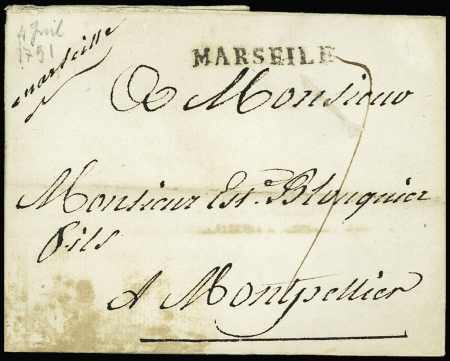 4 Juil
1791
marseille
MARSEILE
A Monsieur
Monsieur Est.e Blouquier
fils
A Montpellier
7